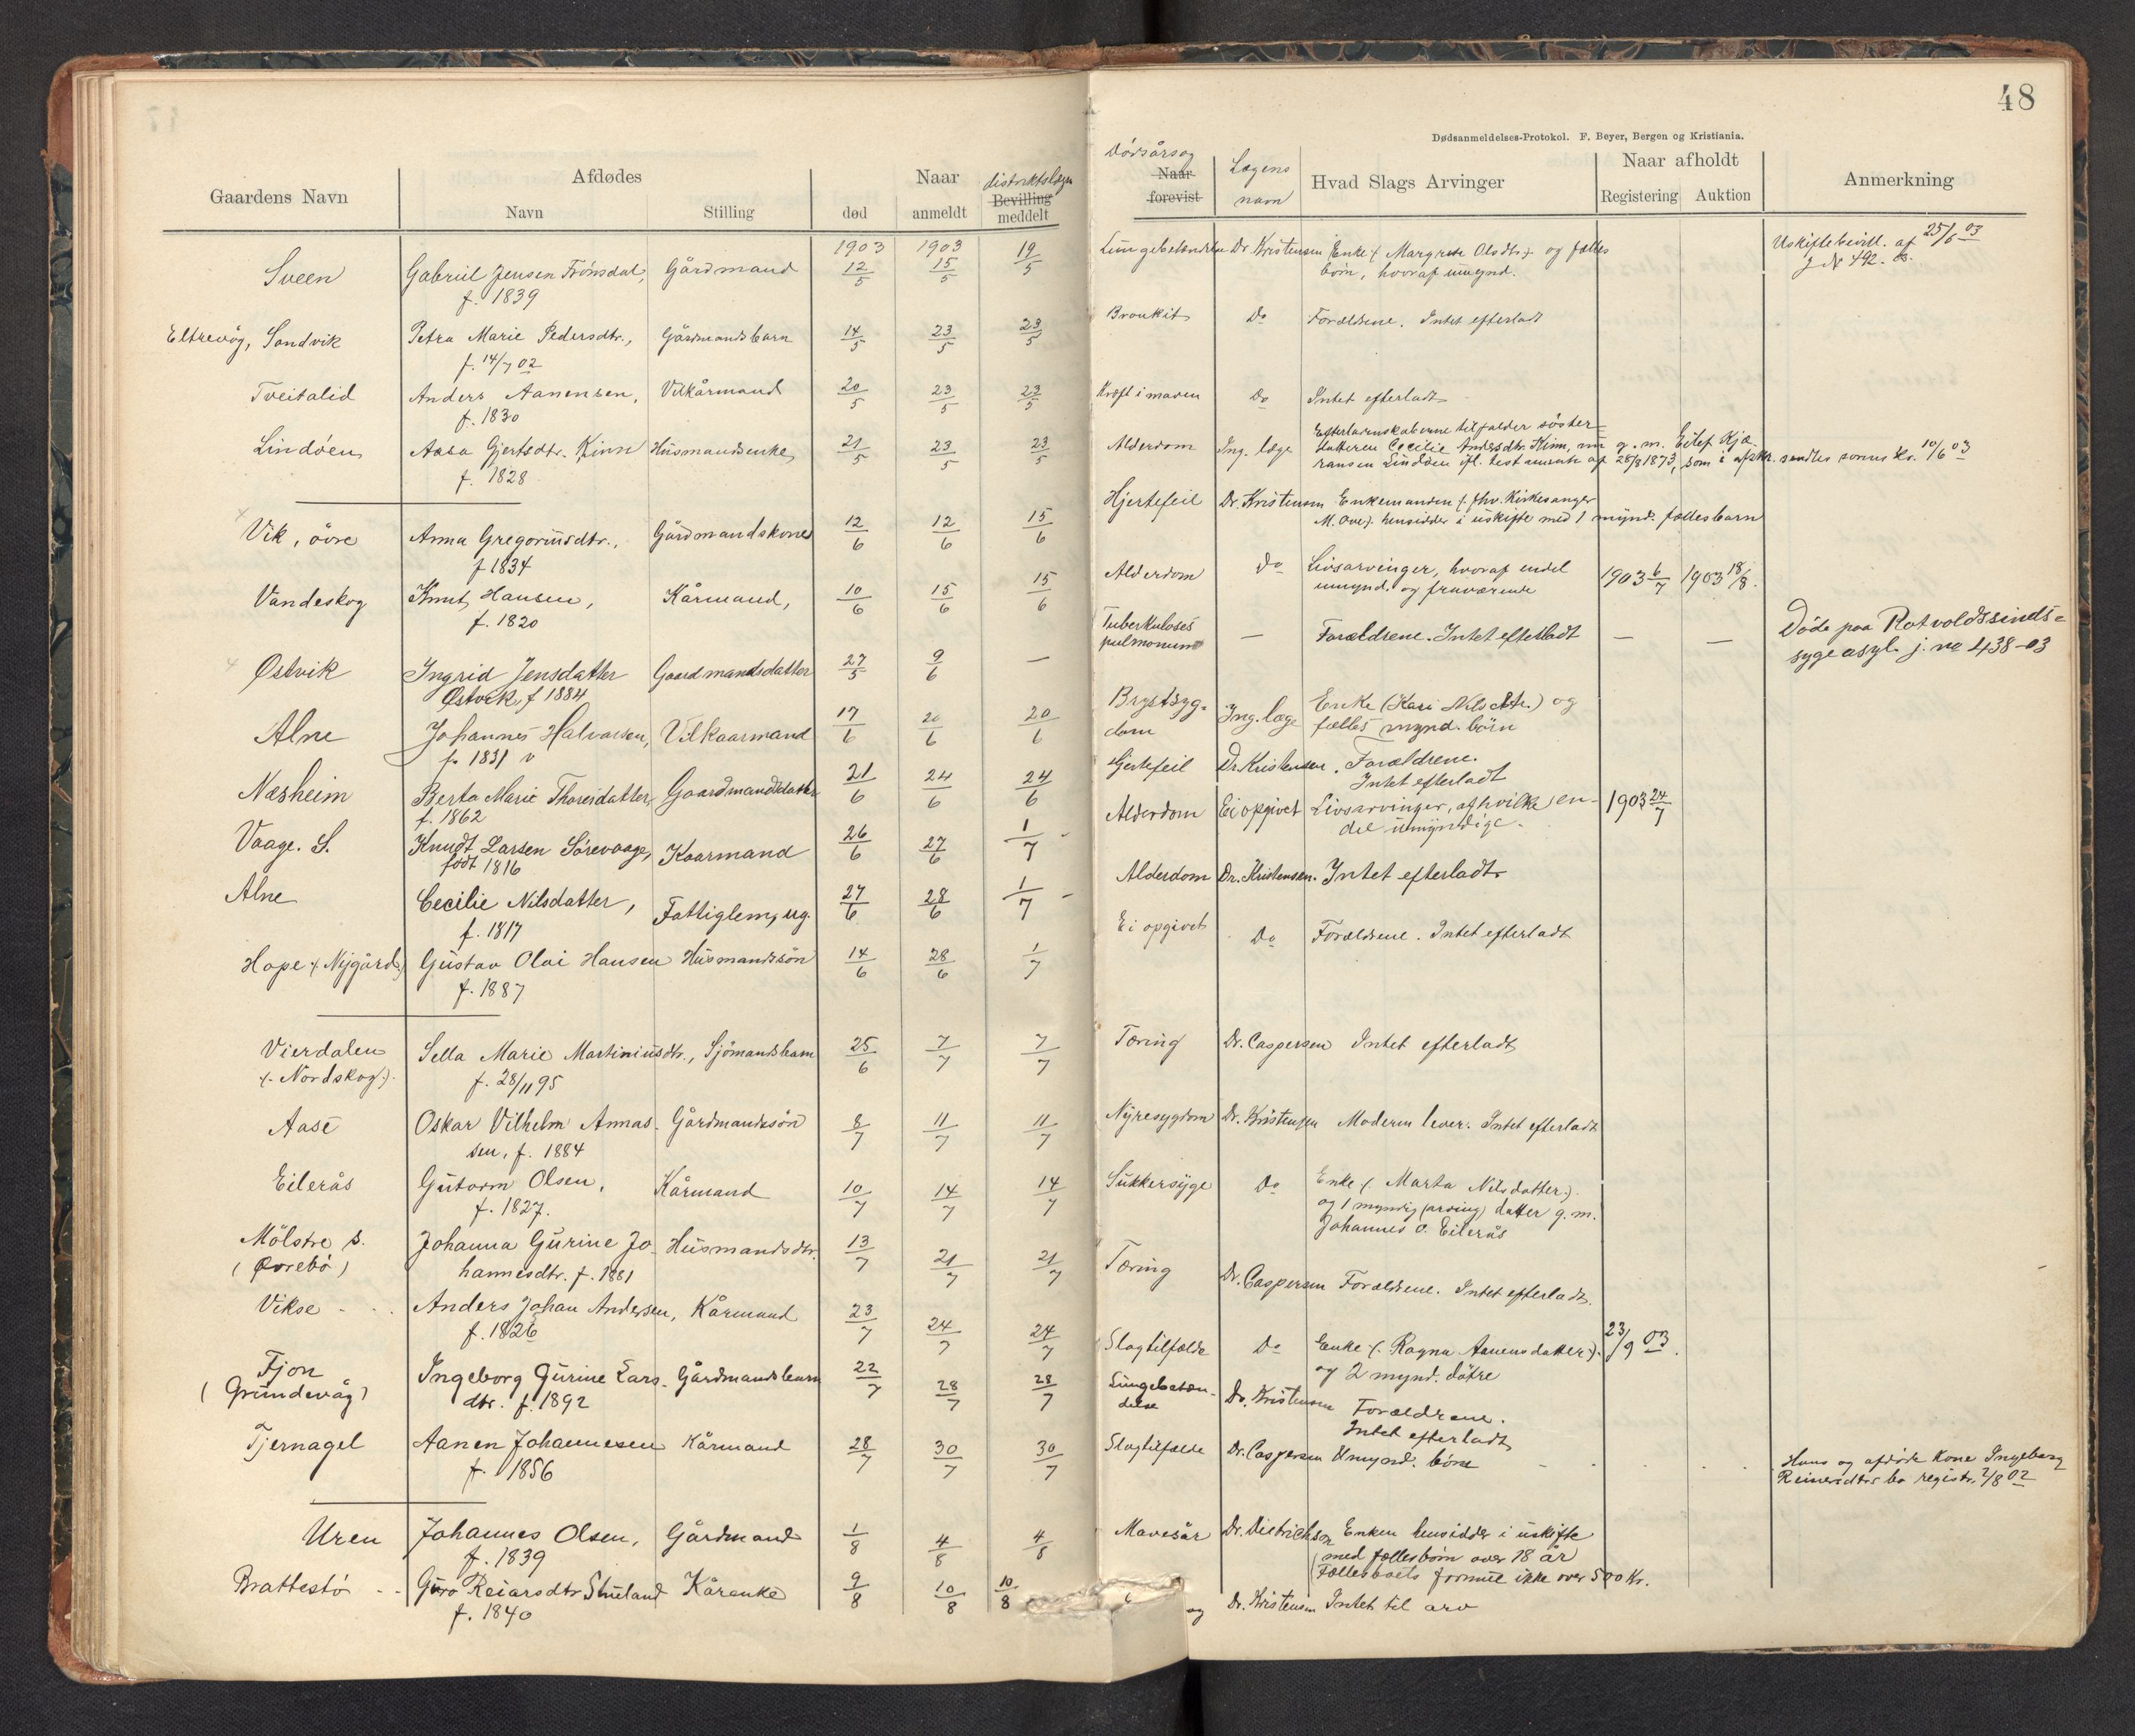 48
Dødsanmeldelses-Protokol. F. Beyer, Bergen og Kristiania.
Gaardens Navn
Afdødes
Navn
Stilling
Naar
død
anmeldt
distriktslægen
Bevilling
meddelt
Dödsårsag
Naar
forevist
Lægens
navn
Hvad Slags Arvinger
Naar afholdt
Registering
Auktion
Anmerkning
1903 1903
Sveen Gabriel Jensen Trönsdal, Gårdmand 12/5 15/5 19/5 Lungebetændelse Dr Kristensen Enke (: Margrete Olsdtr:) og fælles Uskiftebevill. af 25/6 03
f. 1839 börn, hvoraf umynd. J No 492. 03.
Eltrevåg, Sandvik Petra Marie Pedersdtr., Gårdmandsbarn 14/5 23/5 23/5 Bronkit Do Forældrene. Intet efterladt
f. 14/7 02
Tveitalid Anders Aanensen, Vilkårmand 20/5 23/5 23/5 Kræft i maven Do Intet efterladt
f. 1830
Lindöen Aasa Gjertsdtr. Kinn Husmandsenke 21/5 23/5 23/5 Alderdom Ing. læge Efterladenskaberne tilfalder söster-
datteren Cecilie Andersdtr. Kinn, nu g. m. Eilef Kjæ-
f. 1828 ransen Lindöen ifl. testamente af 28/8 1873, som i afskr. sendtes sorens kr. 10/6 03
Vik, övre Anna Gregoriusdtr., Gårdmandskone 12/6 12/6 15/6 Hjertefeil Dr. Kristensen Enkemanden (: fhv. Kirkesanger
f 1834 M. Ove:) hensidder i uskifte med 1 mynd. fællesbarn
Vandeskog Knut Hansen, Kårmand, 10/6 15/6 15/6 Alderdom Do Livsarvinger, hvoraf endel 1903 6/7 1903 18/8.
f. 1820 umynd. og fraværende
Østvik Ingrid Jensdatter Gaardmandsdatter 27/5 9/6 — Tuberkuloses
pulmonum — Forældrene. Intet efterladt — — Döde paa Rotvoldssinds-
Østvik, f 1884 sygeasyl. j. no 438-03
Alne Johannes Halvorsen, Vilkaarmand 17/6 20/6 20/6 Brystsyg-
dom Ing. læge Enke (Kari Nilsdtr.) og
f. 1831 fælles mynd. börn
Næsheim Berta Marie Thoresdatter, Gaardmandsdatter 21/6 24/6 24/6 Hjertefeil Dr Kristensen. Forældrene.
f. 1862 Intet efterladt
Vaage. S. Knudt Larsen Sörevaage, Kaarmand 26/6 27/6 1/7 Alderdom Ei opgivet Livsarvinger, af hvilke en- 1903 24/7
födt 1816 del umyndige.
Alne Cecilie Nilsdatter, Fattiglem, ug. 27/6 28/6 1/7 Alderdom Dr. Kristensen. Intet efterladt
f. 1817
Hope (: Nygård:) Gustav Olai Hansen Husmandssön 14/6 28/6 1/7 Ei opgivet Do Forældrene. Intet efterladt
f. 1887
Vierdalen Sella Marie Martiniusdtr., Sjömandsbarn 25/6 7/7 7/7 Tæring Dr. Caspersen Intet efterladt
(: Nordskog:). f. 28/11 95
Aase Oskar Vilhelm Annas- Gårdmandssön 8/7 11/7 11/7 Nyresygdom Dr. Kristensen Moderen lever. Intet efterladt
sen, f. 1884
Eilerås Gutorm Olsen, Kårmand 10/7 14/7 14/7 Sukkersyge Do Enke (: Marta Nilsdatter:).
f. 1827. og 1 myndig (arving) datter g. m.
Johannes O. Eilerås
Mölstre s. Johanna Gurine Jo- Husmandsdtr. 13/7 21/7 21/7 Tæring Dr. Caspersen Forældrene. Intet efterladt.
(Övrebö) hannesdtr. f. 1881
Vikse Anders Johan Andersen, Kårmand 23/7 24/7 24/7 Slagtilfælde Do Enke (: Ragna Aanensdatter:). 23/9 03.
f. 1826 og 2 mynd. dötre
Fjon Ingeborg Gurine Lars- Gårdmandsbarn 22/7 28/7 28/7 Lungebetæn-
delse Dr. Kristensen Forældrene.
(Grundevåg) dtr. f. 1892 Intet efterladt
Tjernagel Aanen Johannesen Kårmand 28/7 30/7 30/7 Slagtilfælde Dr. Caspersen Umynd. börn Hans og afdöde kone Ingeborg
f. 1856 Reinersdtrs bo registr. 2/8 02
Uren Johannes Olsen, Gårdmand 1/8 4/8 4/8 Mavesår Dr. Dietrichson Enken hensidder i uskifte
f. 1839 med fællesbörn over 18 år
Fællesboets formue ikke over 500 Kr.
Brattestö Guro Reiarsdtr Stueland Kårenke 9/8 10/8 10/8 og Dr. Kristensen Intet til arv
f. 1840